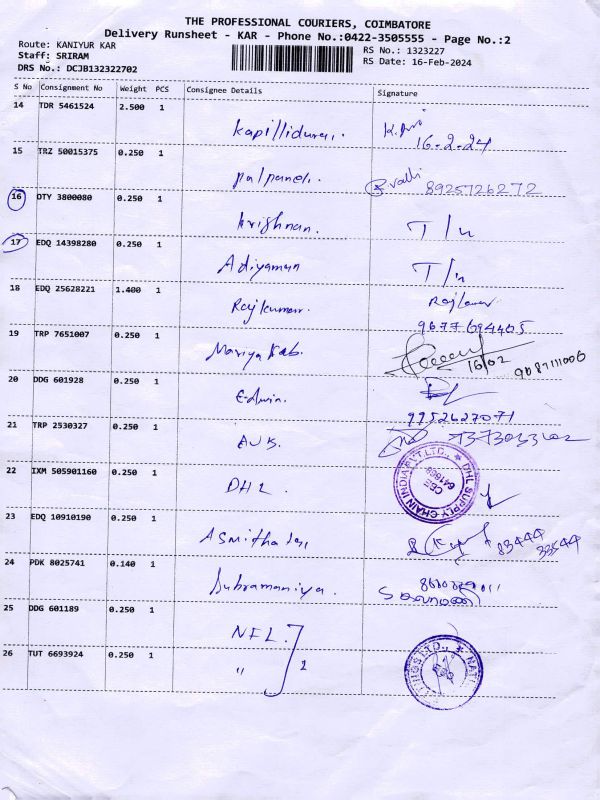 THE PROFESSIONAL COURIERS, COIMBATORE
Delivery Runsheet - KAR - Phone No.:0422-3505555 - Page No.:2
Route: KANIYUR KAR
RS No.: 1323227
Staff: SRIRAM
RS Date: 16-Feb-2024
DRS No.: DCJB132322702
S No Consignment No Weight PCS Consignee Details Signature
14 TDR 5461524 2.500 1
16-2-24
15 TRZ 50015375 0.250 1
valli 8925726272
16 DTY 3800080 0.250 1
Krishnan. T/n
17 EDQ 14398280 0.250 1
Adiyaman T/n
18 EDQ 25628221 1.400 1
Rajkumar.
9677694405
19 TRP 7651007 0.250 1
16/02
20 DDG 601928 0.250 1
Edwin.
9952627071
21 TRP 2530327 0.250 1
22 IXM 505901160 0.250 1
DHL. DHL SUPPLY CHAIN INDIA PVT. LTD.,
23 EDQ 10910190 0.250 1
83444
33544
24 PDK 8025741 0.140 1
Subramaniya.
25 DDG 601189 0.250 1
NFL.
26 TUT 6693924 0.250 1
" 2